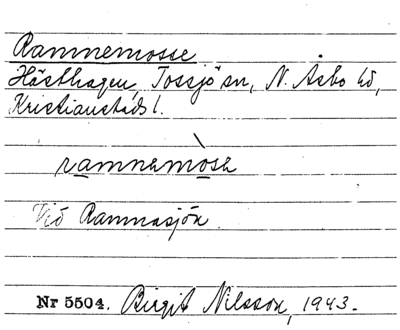 Ramnemosse
Hästhagen, Tossjö sn, N. Åsbo hd,
Kristianstads l.
ramnemòsa
Vid Ramnasjön.
Nr 5504. Birgit Nilsson, 1943.